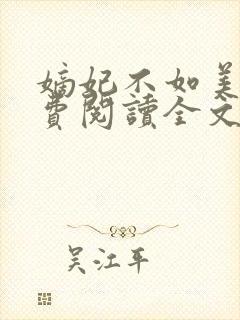 嫡妃不如美
費閱讀全文
吴江平